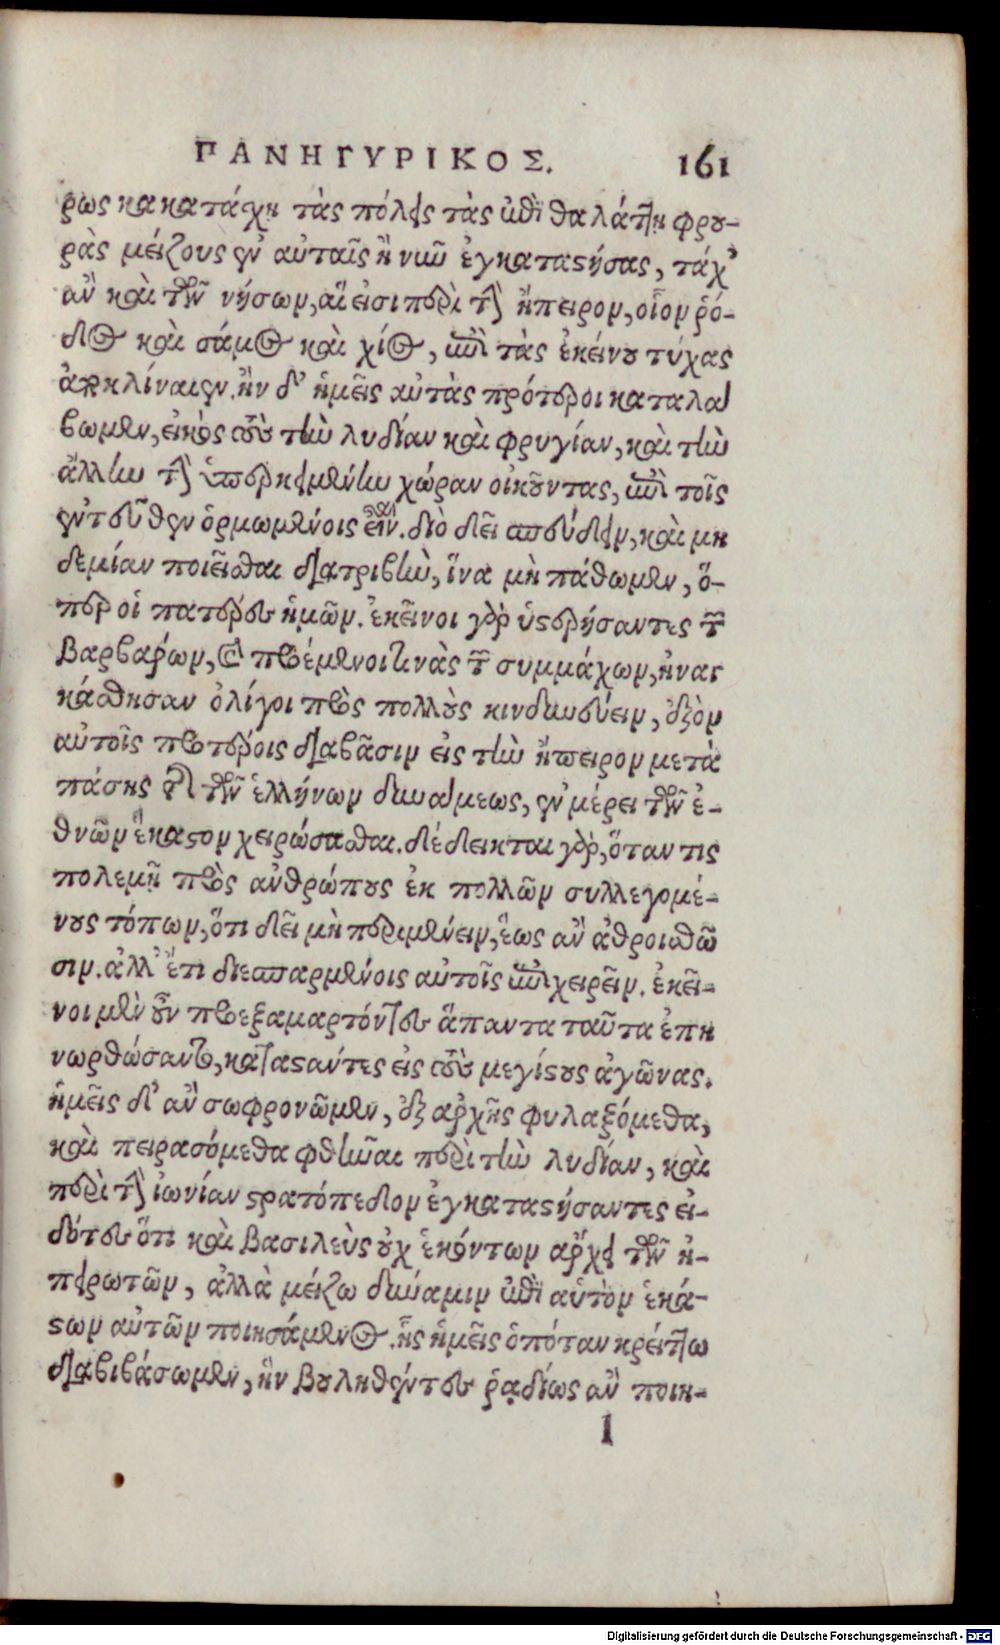 ΠΑΝΗΓΥΡΙΚΟΣ. 161
ρως κακατάχη τὰς πόλεις τὰς ἐπὶ θαλάττη φρου-
ρὰς μείζους ἐν αὐταῖς ἢ νῦν ἐγκαταστήσας, τάχ'
ἂν καὶ τῶν νήσων, αἵ εἰσι περὶ τὴν ἤπειρον, οἷον ῥό-
δος καὶ σάμος καὶ χίος, ἐπὶ τὰς ἐκείνου τύχας
ἀποκλίναιεν. ἢν δ' ἡμεῖς αὐτὰς πρότεροι καταλά
βωμεν, εἰκὸς τοὺς τὴν λυδίαν καὶ φρυγίαν, καὶ τὴν
ἄλλην τὴν ὑπερκειμένην χώραν οἰκοῦντας, ἐπὶ τοῖς
ἐντεῦθεν ὁρμωμένοις εἶναι. διὸ δεῖ σπεύδειν, καὶ μη
δεμίαν ποιεῖσθαι διατριβὴν, ἵνα μὴ πάθωμεν, ὅ-
περ οἱ πατέρες ἡμῶν. ἐκεῖνοι γὰρ ὑστερήσαντες τῶν
βαρβάρων, καὶ προέμενοι τινὰς τῶν συμμάχων, ἠναγ
κάσθησαν ὀλίγοι πρὸς πολλοὺς κινδυνεύειν, ἐξὸν
αὐτοῖς προτέροις διαβᾶσιν εἰς τὴν ἤπειρον μετὰ
πάσης τῆς τῶν ἑλλήνων δυνάμεως, ἐν μέρει τῶν ἐ-
θνῶν ἕκαστον χειρώσασθαι. δέδεικται γὰρ, ὅταν τις
πολεμῇ πρὸς ἀνθρώπους ἐκ πολλῶν συλλεγομέ-
νους τόπων, ὅτι δεῖ μὴ περιμένειν, ἕως ἂν ἀθροισθῶ
σιν. ἀλλ' ἔτι διεσπαρμένοις αὐτοῖς ἐπιχειρεῖν. ἐκεῖ-
νοι μὲν οὖν προεξαμαρτόντες ἅπαντα ταῦτα ἐπη
νωρθώσαντο, καταστάντες εἰς τοὺς μεγίστους ἀγῶνας.
ἡμεῖς δ' ἂν σωφρονῶμεν, ἐξ ἀρχῆς φυλαξόμεθα,
καὶ πειρασόμεθα φθῆναι περὶ τὴν λυδίαν, καὶ
περὶ τὴν ἰωνίαν στρατόπεδον ἐγκαταστήσαντες εἰ-
δότες ὅτι καὶ βασιλεὺς οὐχ ἑκόντων ἄρχει τῶν ἠ-
πειρωτῶν, ἀλλὰ μείζω δύναμιν ἐπὶ αὑτὸν ἑκά-
στων αὐτῶν ποιησάμενος. ἧς ἡμεῖς ὁπόταν κρείττω
διαβιβάσωμεν, ἢν βουληθέντες ῥᾳδίως ἂν ποιη-
l
Digitalisierung gefördert durch die Deutsche Forschungsgemeinschaft - DFG